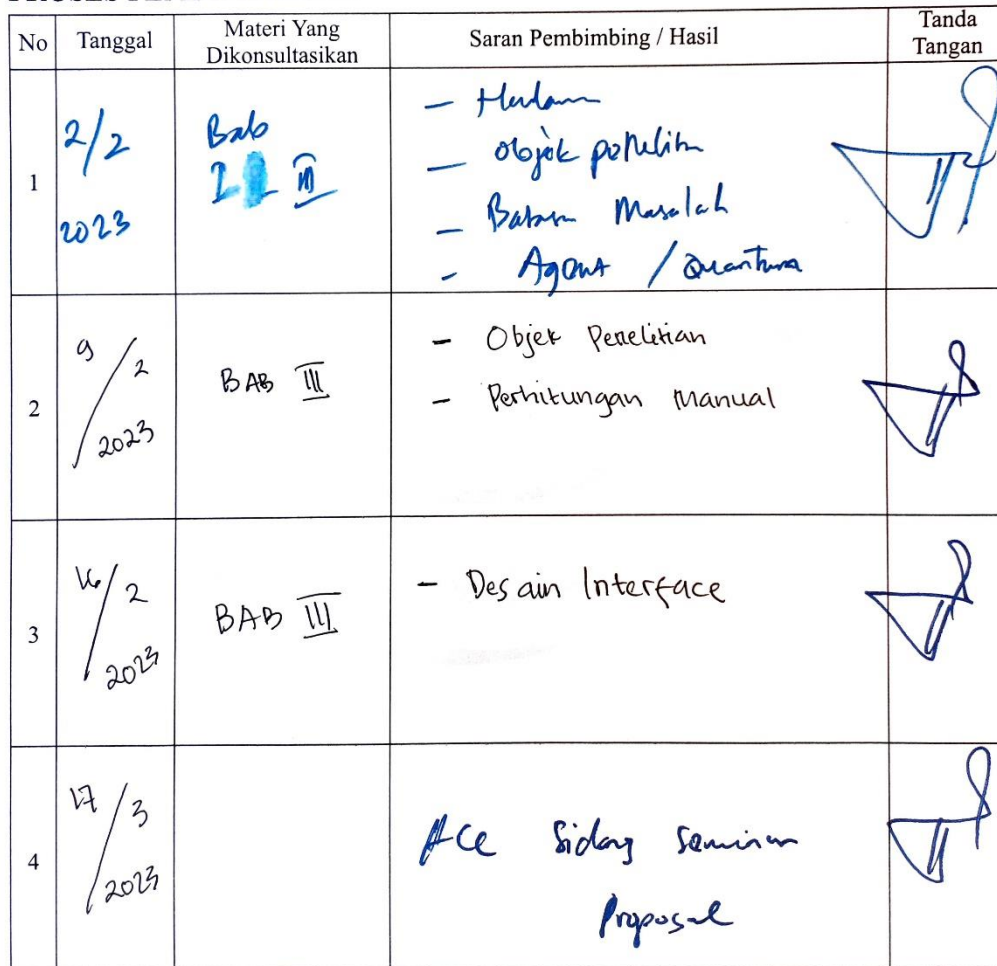 No Tanggal Materi Yang Dikonsultasikan Saran Pembimbing / Hasil Tanda Tangan
1
2/2
2023
Bab
I III
-
- objek
- Masalah
- Agent / Quantum
2
9/2
2023
BAB III
- Objek Penelitian
- Perhitungan Manual
3
16/2
2023
BAB III
- Desain Interface
4
17/3
2023
Acc Sidang Seminar
Proposal